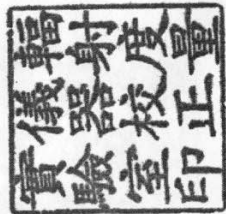 輻射度量
儀器校正
實驗室印